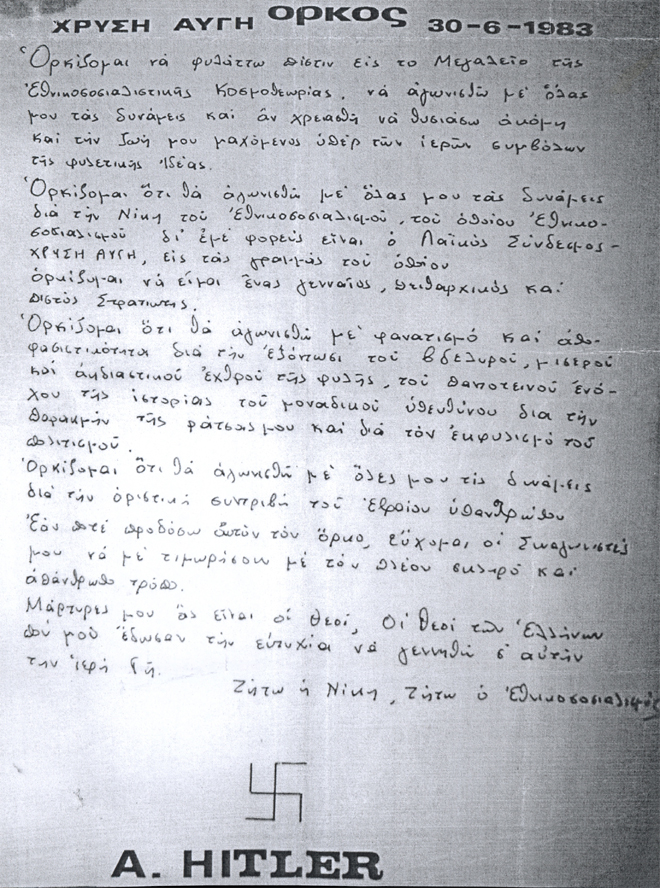 ΧΡΥΣΗ ΑΥΓΗ ΟΡΚΟΣ 30-6-1983
Ὁρκίζομαι νά φυλάττω πίστιν εἰς το Μεγαλείο τῆς
Ἐθνικοσοσιαλιστικῆς Κοσμοθεωρίας, νά ἀγωνισθῶ μέ ὅλας
μου τάς δυνάμεις καί ἄν χρειασθῆ νά θυσιάσω ἀκόμη
καί τήν ζωή μου μαχόμενος ὑπέρ τῶν ἱερῶν συμβόλων
τῆς φυλετικῆς Ἰδέας.
Ὁρκίζομαι ὅτι θά ἀγωνισθῶ μέ ὅλας μου τάς δυνάμεις
διά τήν Νίκη τοῦ Ἐθνικοσοσιαλισμοῦ, τοῦ ὁποίου Ἐθνικο-
σοσιαλισμοῦ δι' ἐμέ φορεύς εἶναι ὁ Λαϊκός Σύνδεσμος-
ΧΡΥΣΗ ΑΥΓΗ, εἰς τάς γραμμάς τοῦ ὁποίου
ὁρκίζομαι νά εἶμαι ἕνας γενναῖος, πειθαρχικός καί
πιστός Στρατιώτης.
Ὁρκίζομαι ὅτι θά ἀγωνισθῶ μέ φανατισμό καί ἀπο-
φασιστικότητα διά τήν ἐξόντωσι τοῦ βδελυροῦ, μιεροῦ
καί ἀηδιαστικοῦ ἐχθροῦ τῆς φυλῆς, τοῦ ταποτεινοῦ ἐνό-
χου τῆς ἱστορίας τοῦ μοναδικοῦ ὑπευθύνου δια τήν
παρακμήν τῆς ράτσας μου καί διά τόν ἐκφυλισμό τοῦ
πολιτισμοῦ.
Ὁρκίζομαι ὅτι θά ἀγωνισθῶ μέ ὅλες μου τίς δυνάμεις
διά τήν ὁριστική συντριβή τοῦ Ἑβραίου ὑπανθρώπου
Ἐάν ποτέ προδόσω αὐτόν τόν ὅρκο, εὔχομαι οἱ Συναγωνιστές
μου νά μέ τιμωρήσουν μέ τόν πλέον σκληρό καί
ἀπάνθρωπο τρόπο.
Μάρτυρες μου ἄς εἶναι οἱ Θεοί, Οἱ Θεοί τῶν Ἑλλήνων
πού μοῦ ἔδωσαν τήν εὐτυχία νά γεννηθῶ σ' αὐτήν
την ἱερή Γῆ.
Ζήτω ἡ Νίκη, Ζήτω ὁ Ἐθνικοσοσιαλισμός
A. HITLER